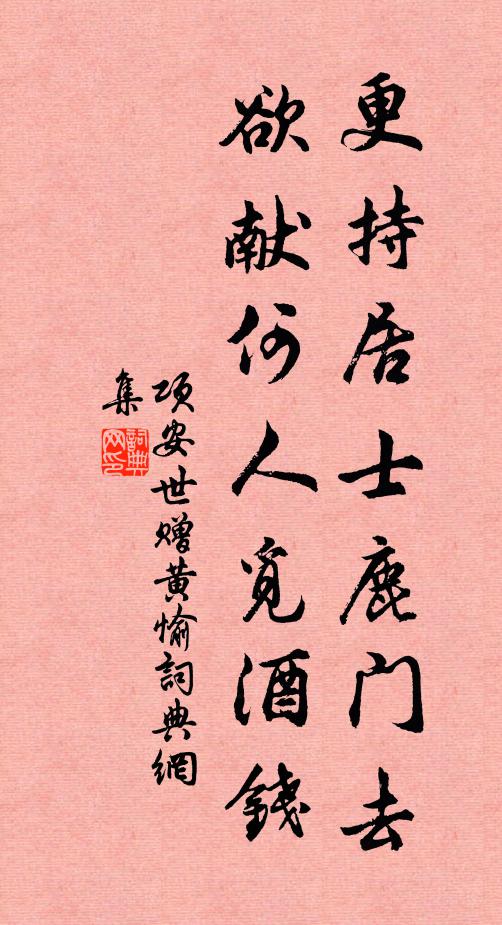 更持居士鹿门去
欲献何人觅酒錢
项安世赠黄愉詞典網
集
詞典网印